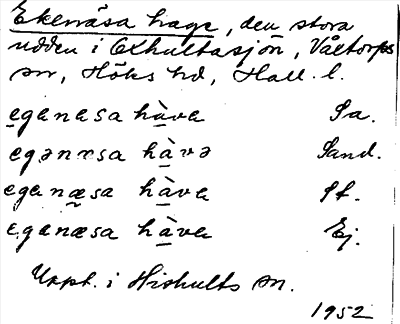 Ekenäsa hage, den stora
udden i Oxhultasjön, Våxtorps
sn, Höks hd, Hall. l.
eganasa hàva Sa.
eganæsa hàvə Sand.
eganæsa hàva Sf.
eganæsa hàva Ej.
Uppt. i Hishults sn.
1952